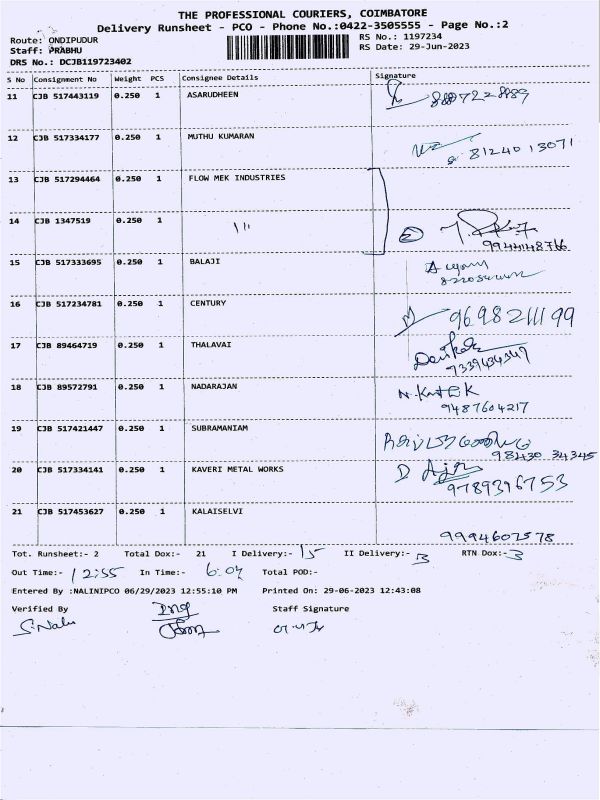 THE PROFESSIONAL COURIERS, COIMBATORE
Delivery Runsheet - PCO - Phone No.:0422-3505555 - Page No.:2
Route: ONDIPUDUR
RS No.: 1197234
Staff: PRABHU
RS Date: 29-Jun-2023
DRS No.: DCJB119723402
S No Consignment No Weight PCS Consignee Details Signature
11 CJB 517443119 0.250 1 ASARUDHEEN
12 CJB 517334177 0.250 1 MUTHU KUMARAN 81240 13071
13 CJB 517294464 0.250 1 FLOW MEK INDUSTRIES
14 CJB 1347519 0.250 1 9944148766
15 CJB 517333695 0.250 1 BALAJI
16 CJB 517234781 0.250 1 CENTURY 9698211199
17 CJB 89464719 0.250 1 THALAVAI
18 CJB 89572791 0.250 1 NADARAJAN
9487604217
19 CJB 517421447 0.250 1 SUBRAMANIAM
98430 34345
20 CJB 517334141 0.250 1 KAVERI METAL WORKS
9789396753
21 CJB 517453627 0.250 1 KALAISELVI
9994607578
Tot. Runsheet:- 2 Total Dox:- 21 I Delivery:- 15 II Delivery:- 3 RTN Dox:- 3
Out Time:- 12:55 In Time:- 6:07 Total POD:-
Entered By :NALINIPCO 06/29/2023 12:55:10 PM Printed On: 29-06-2023 12:43:08
Verified By Staff Signature